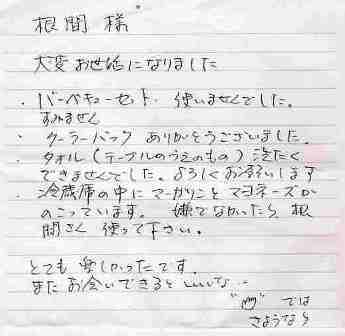 根間 様
大変 お世話になりました
・バーベキューセット・使いませんでした。
すみません
・クーラーバック ありがとうございました。
・タオル(テーブルのうえのもの)洗たく
できませんでした。よろしくお願いします
・冷蔵庫の中にマーガリンとマヨネーズが
のこっています。嫌でなかったら 根
間さん 使って下さい。
とても 楽しかったです。
また お会いできると いいな…
では
さようなら